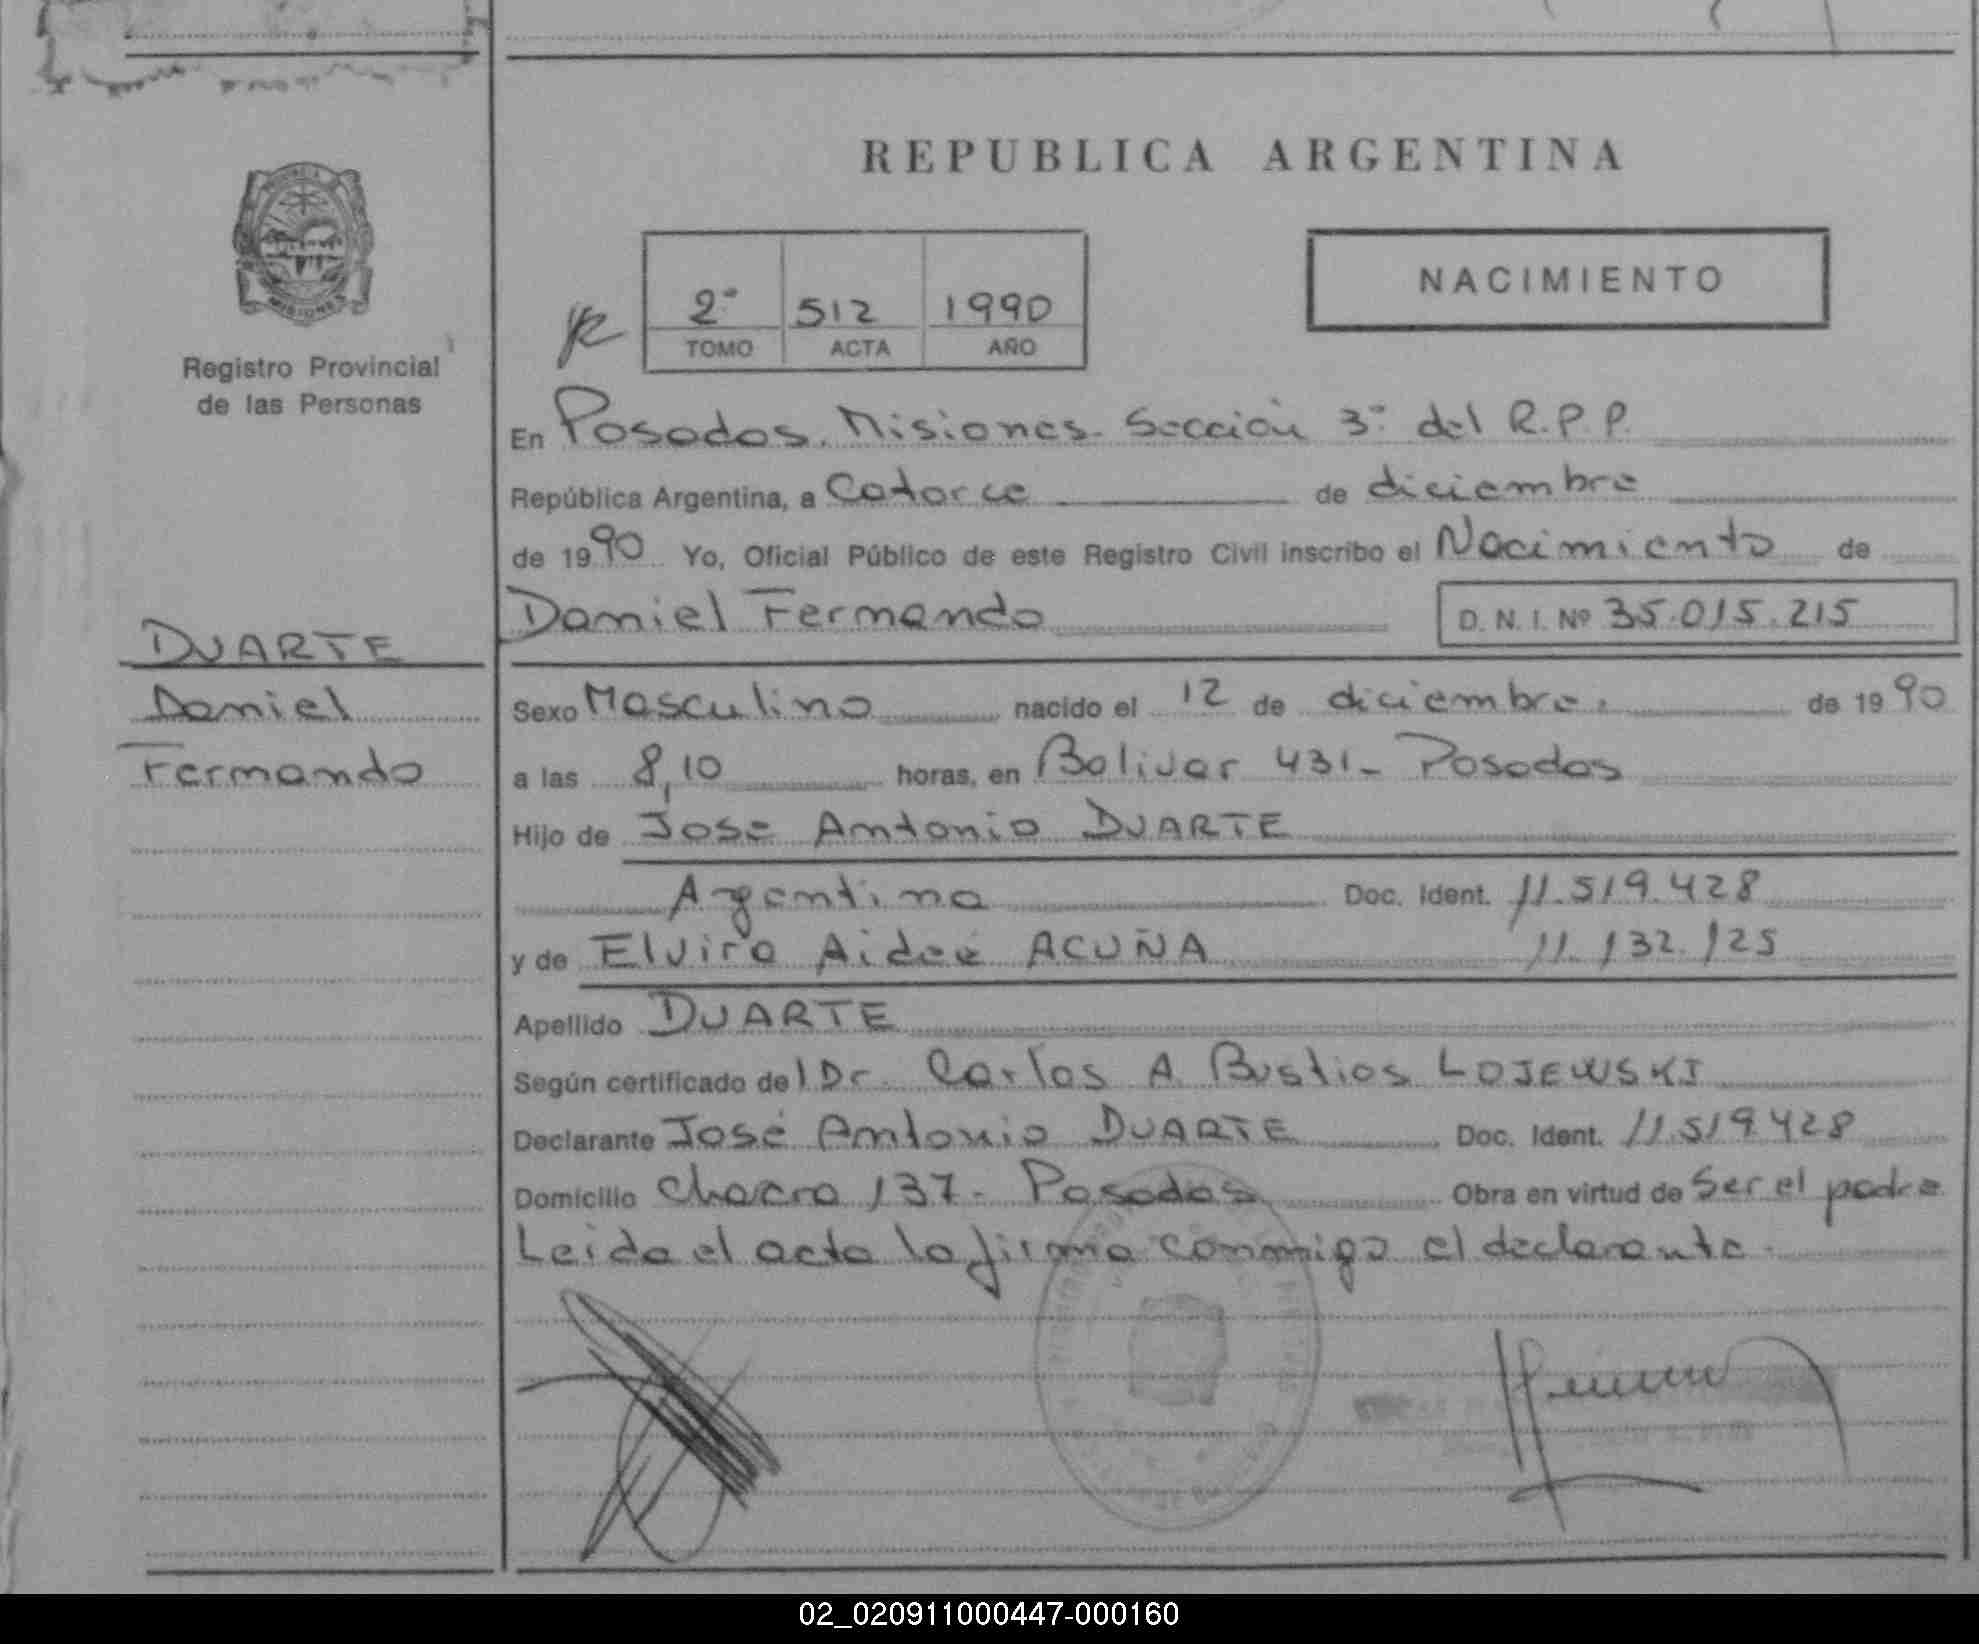 REPUBLICA ARGENTINA
NACIMIENTO
2º 512 1990
TOMO ACTA AÑO
Registro Provincial
de las Personas
En Posadas. Misiones. Sección 3ª del R.P.P.
República Argentina, a Catorce de diciembre
de 1990 Yo, Oficial Público de este Registro Civil inscribo el Nacimiento de
Daniel Fernando D. N. I. Nº 35.015.215
DUARTE
Daniel
Fernando
Sexo Masculino nacido el 12 de diciembre. de 1990
a las 8,10 horas, en Bolivar 431- Posadas
Hijo de José Antonio DUARTE
Argentina Doc. Ident. 11.519.428
y de Elvira Aideé ACUÑA 11.132.125
Apellido DUARTE
Según certificado del Dr. Carlos A. Bustios LOJEWSKI
Declarante José Antonio DUARTE Doc. Ident. 11.519.428
Domicilio Chacra 137- Posadas Obra en virtud de Ser el padre
Leida el acta la firma conmigo el declarante.
02_020911000447-000160